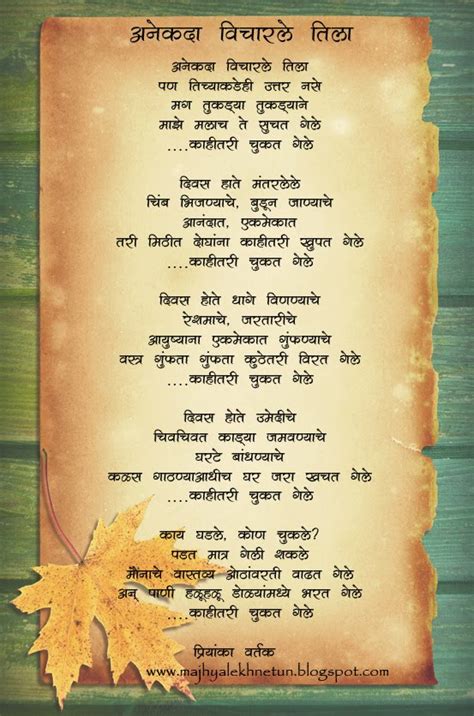 अनेकदा विचारले तिला
अनेकदा विचारले तिला
पण तिच्याकडेही उत्तर नसे
मग तुकड्या तुकड्याने
माझे मलाच ते सुचत गेले
....काहीतरी चुकत गेले
दिवस हाते मंतरलेले
चिंब भिजण्याचे, बुडून जाण्याचे
आनंदात, एकमेकात
तरी मिठीत दोघांना काहीतरी खुपत गेले
....काहीतरी चुकत गेले
दिवस होते धागे विणण्याचे
रेशमाचे, जरतारीचे
आयुष्याना एकमेकात गुंफण्याचे
वस्त्र गुंफता गुंफता कुठेतरी विरत गेले
....काहीतरी चुकत गेले
दिवस होते उमेदीचे
चिवचिवत काड्या जमवण्याचे
घरटे बांधण्याचे
कळस गाठण्याआधीच घर जरा खचत गेले
....काहीतरी चुकत गेले
काय घडले, कोण चुकले?
पडत मात्र गेली शकले
मौनाचे वास्तव्य ओठांवरती वाढत गेले
अन् पाणी हळूहळू डोळ्यांमध्ये भरत गेले
....काहीतरी चुकत गेले
प्रियांका वर्तक
www.majhyalekhnetun.blogspot.com